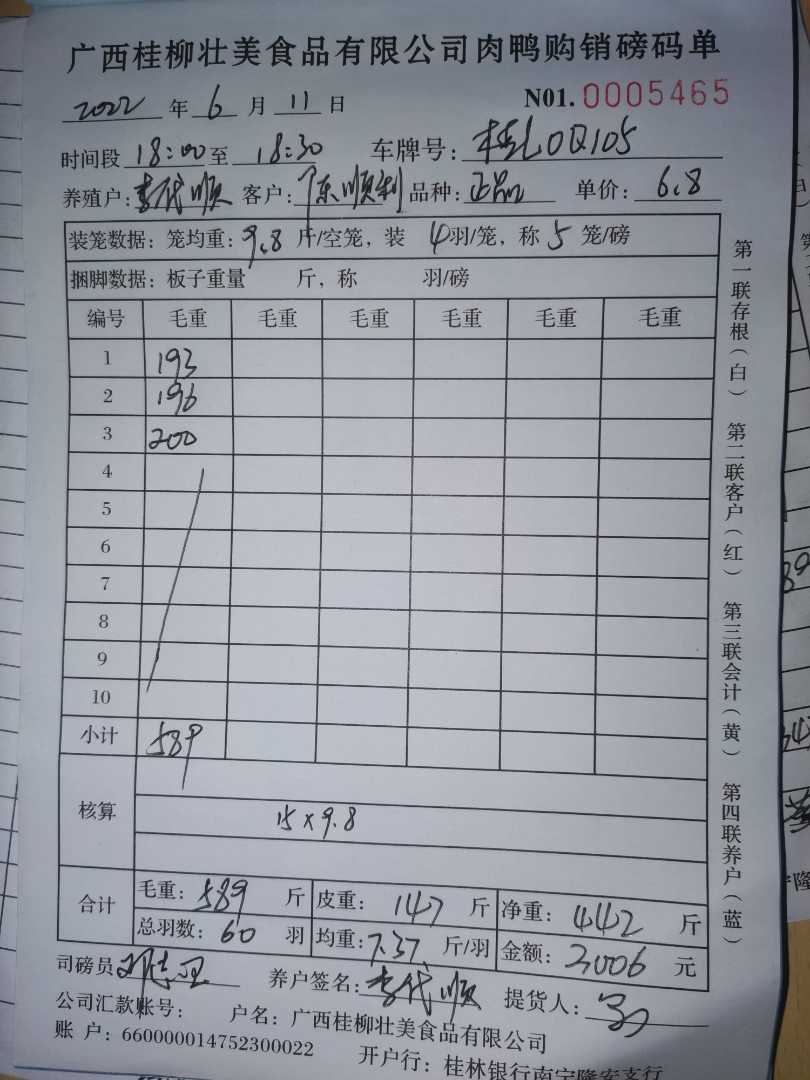 广西桂柳壮美食品有限公司肉鸭购销磅码单
2022 年 6 月 11 日 N01. 0005465
时间段 18:00 至 18:30 车牌号: 桂L0Q105
养殖户: 李代顺 客户: 陈顺利 品种: 正品 单价: 6.8
装笼数据: 笼均重: 9.8 斤/空笼, 装 4 羽/笼, 称 5 笼/磅
捆脚数据: 板子重量 斤, 称 羽/磅
编号 毛重 毛重 毛重 毛重 毛重 毛重
1 193
2 196
3 200
4
5
6
7
8
9
10
小计 589
核算 15×9.8
合计 毛重: 589 斤 皮重: 147 斤 净重: 442 斤
总羽数: 60 羽 均重: 7.37 斤/羽 金额: 3006 元
司磅员 养户签名: 李代顺 提货人:
公司汇款账号: 户名: 广西桂柳壮美食品有限公司
账 户: 660000014752300022 开户行: 桂林银行南宁隆安支行
第一联存根(白) 第二联客户(红) 第三联会计(黄) 第四联养户(蓝)